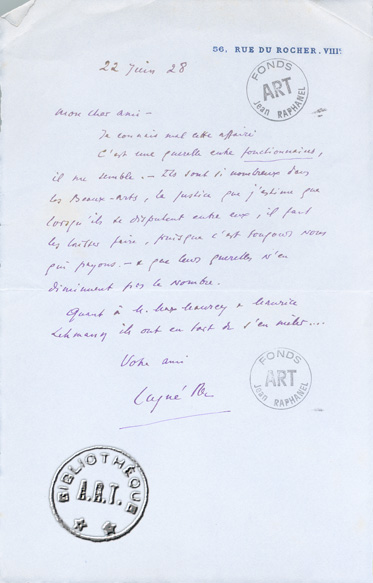 56, RUE DU ROCHER. VIIIE
22 Juin 28
FONDS
ART
Jean RAPHANEL
Mon cher ami –
Je connais mal cette affaire
C'est une querelle entre fonctionnaires,
il me semble. – Ils sont si nombreux dans
les Beaux-Arts, la Justice que j'estime que
lorsqu'ils se disputent entre eux, il faut
les laisser faire, puisque c'est toujours nous
qui payons. – & que leurs querelles n'en
diminuent pas le nombre.
Quant à M. Max Maurey & Maurice
Lehmann ils ont eu tort de s'en mêler...
Votre ami
Lugné Poe
FONDS
ART
Jean RAPHANEL
BIBLIOTHÈQUE
A.R.T.